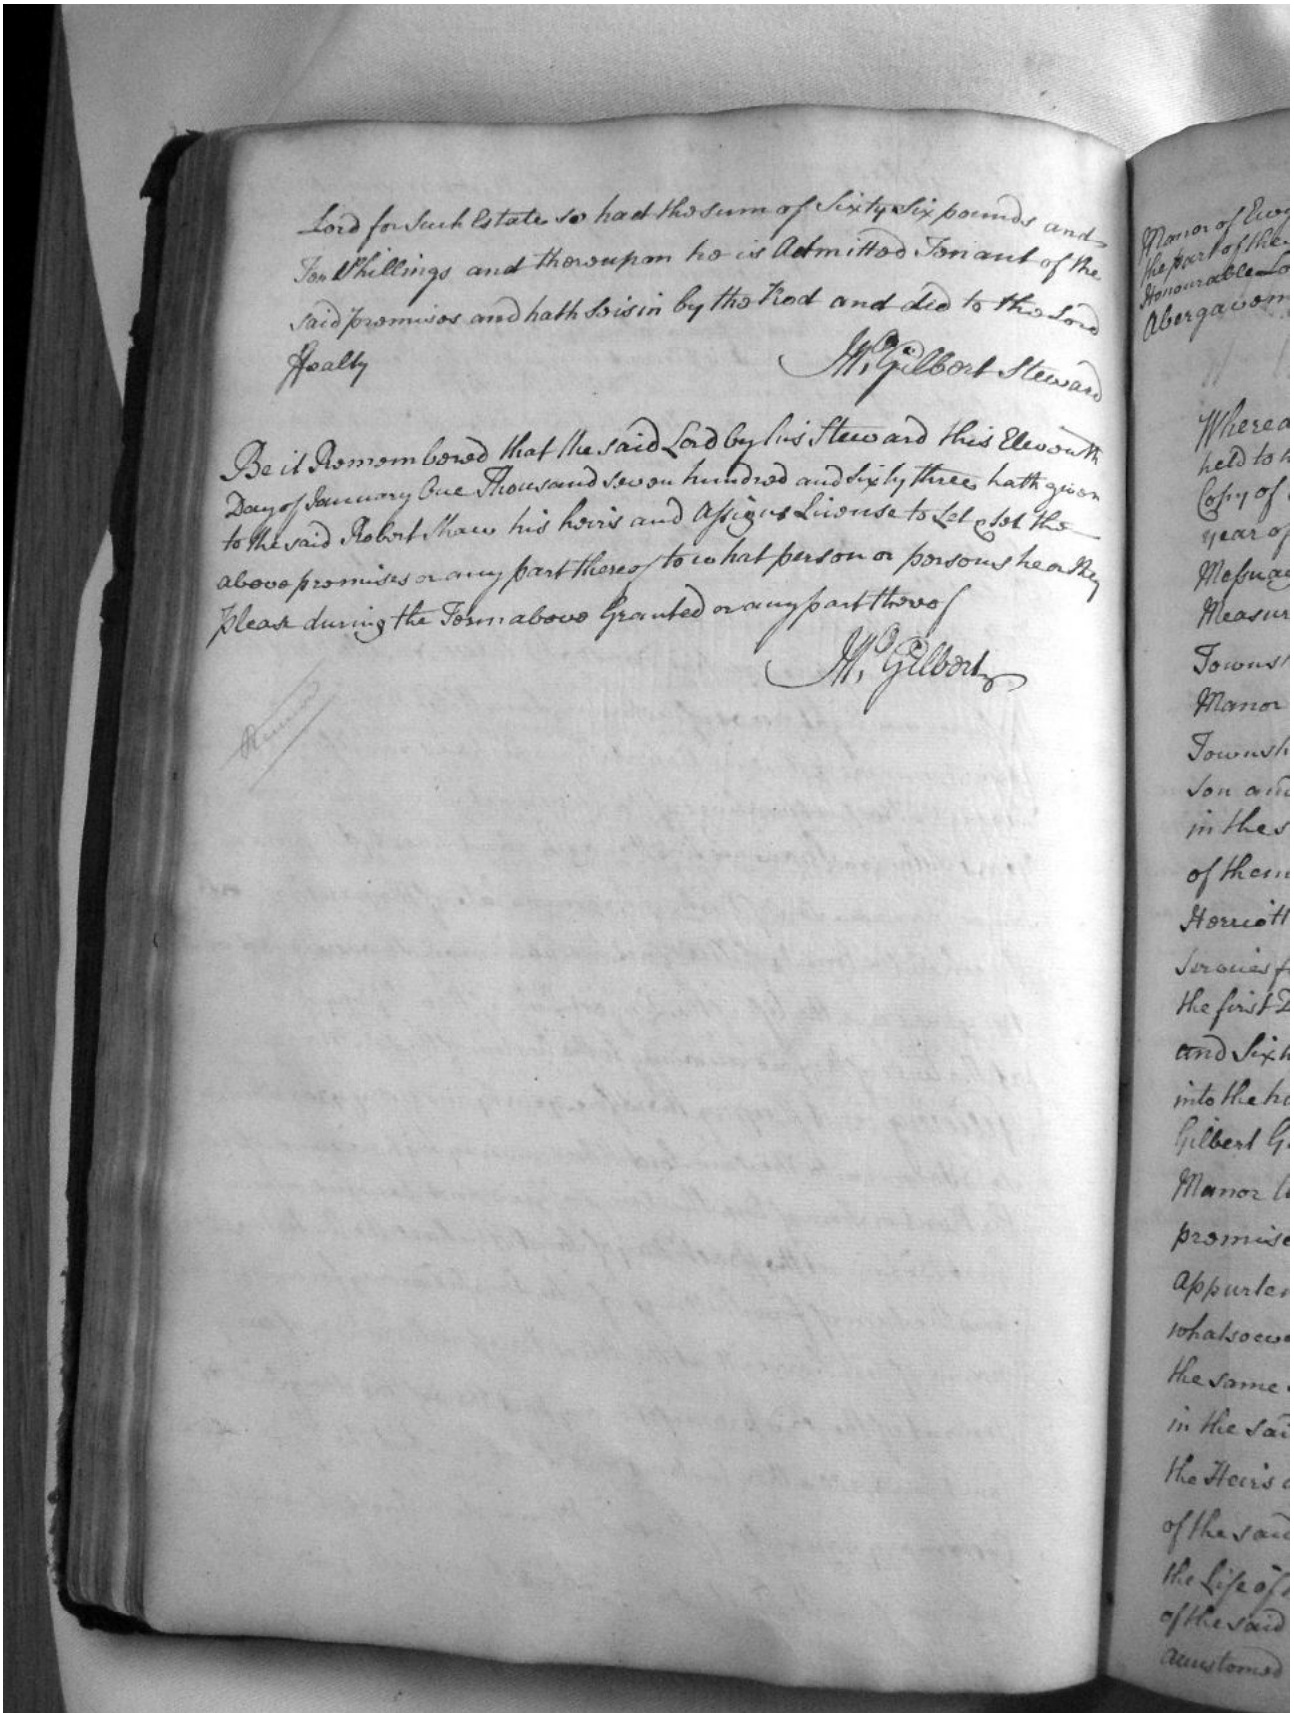 Lord for such Estate so had the sum of Sixty Six pounds and
Ten Shillings and thereupon he is Admitted Tenant of the
said premises and hath Seisin by the Rod and did to the Lord
ffealty
Wm. Gilbert Steward
Be it Remembered that the said Lord by his Steward this Eleventh
Day of January One Thousand seven hundred and sixty three hath given
to the said Robert Shaw his heirs and Assigns License to Let & set the
above premises or any part thereof to what person or persons he or they
please during the Term above Granted or any part thereof
Wm. Gilbert
Manor of
the part of the
Honourable Lo
Abergaven
Wherea
held to h
Copy of
year of
Messuag
Measur
Townsh
Manor
Townsh
son and
in the s
of them
Herriott
Services f
the first D
and Sixt
into the ha
Gilbert G
Manor
premise
Appurten
whatsoeve
the same
in the sai
the Heirs
of the said
the Life of
of the said
accustomed